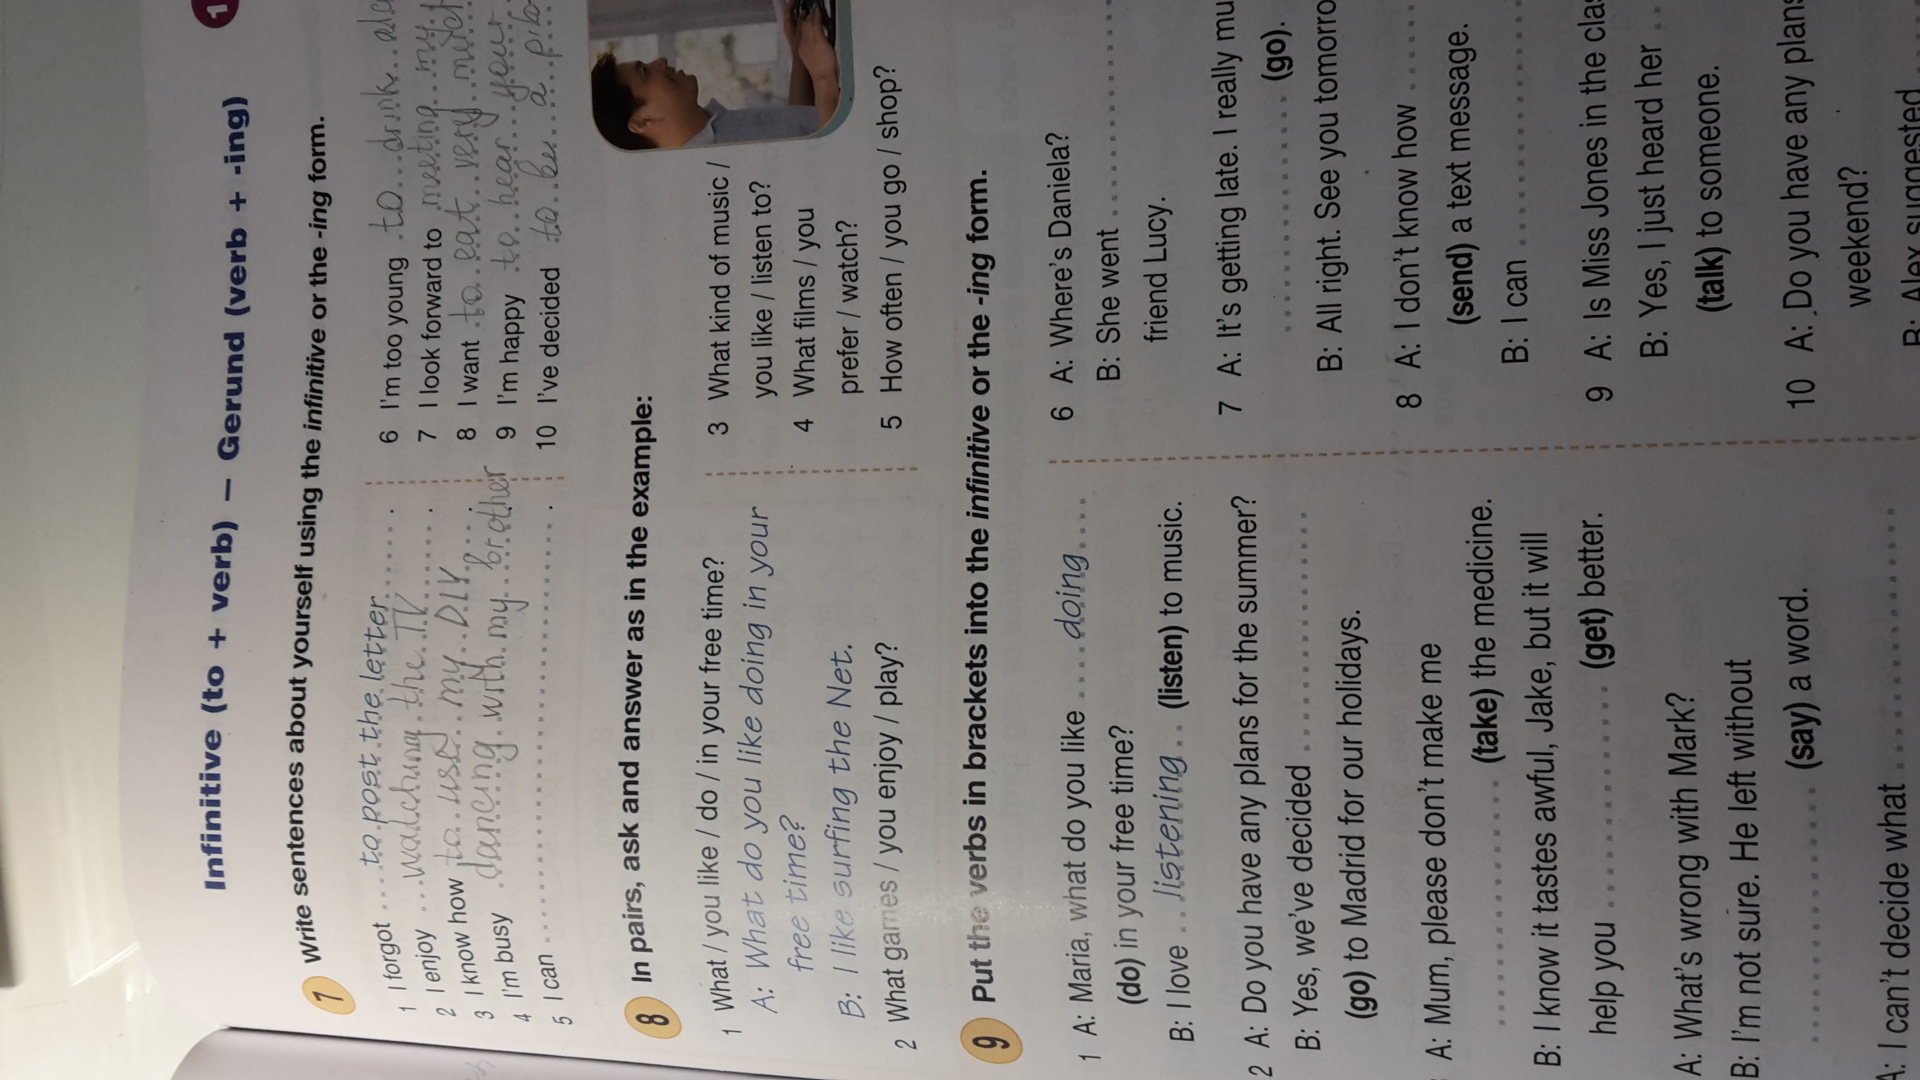 Infinitive (to + verb) – Gerund (verb + -ing)
1
7 Write sentences about yourself using the infinitive or the -ing form.
1 I forgot .... to post the letter ......
2 I enjoy ... watching the TV ......
3 I know how to use my DIY
4 I'm busy dancing with my brother
5 I can ......
6 I'm too young to drink
7 I look forward to meeting my
8 I want to eat very much
9 I'm happy to hear your
10 I've decided to be a
8 In pairs, ask and answer as in the example:
1 What / you like / do / in your free time?
A: What do you like doing in your
free time?
B: I like surfing the Net.
2 What games / you enjoy / play?
3 What kind of music /
you like / listen to?
4 What films / you
prefer / watch?
5 How often / you go / shop?
9 Put the verbs in brackets into the infinitive or the -ing form.
1 A: Maria, what do you like .... doing ....
(do) in your free time?
B: I love .. listening .. (listen) to music.
2 A: Do you have any plans for the summer?
B: Yes, we've decided ......
(go) to Madrid for our holidays.
A: Mum, please don't make me
...... (take) the medicine.
B: I know it tastes awful, Jake, but it will
help you ...... (get) better.
A: What's wrong with Mark?
B: I'm not sure. He left without
...... (say) a word.
A: I can't decide what ......
6 A: Where's Daniela?
B: She went ......
friend Lucy.
7 A: It's getting late. I really mu
...... (go).
B: All right. See you tomorro
8 A: I don't know how ......
(send) a text message.
B: I can ......
9 A: Is Miss Jones in the cla
B: Yes, I just heard her ..
(talk) to someone.
10 A: Do you have any plans
weekend?
B: Alex suggested